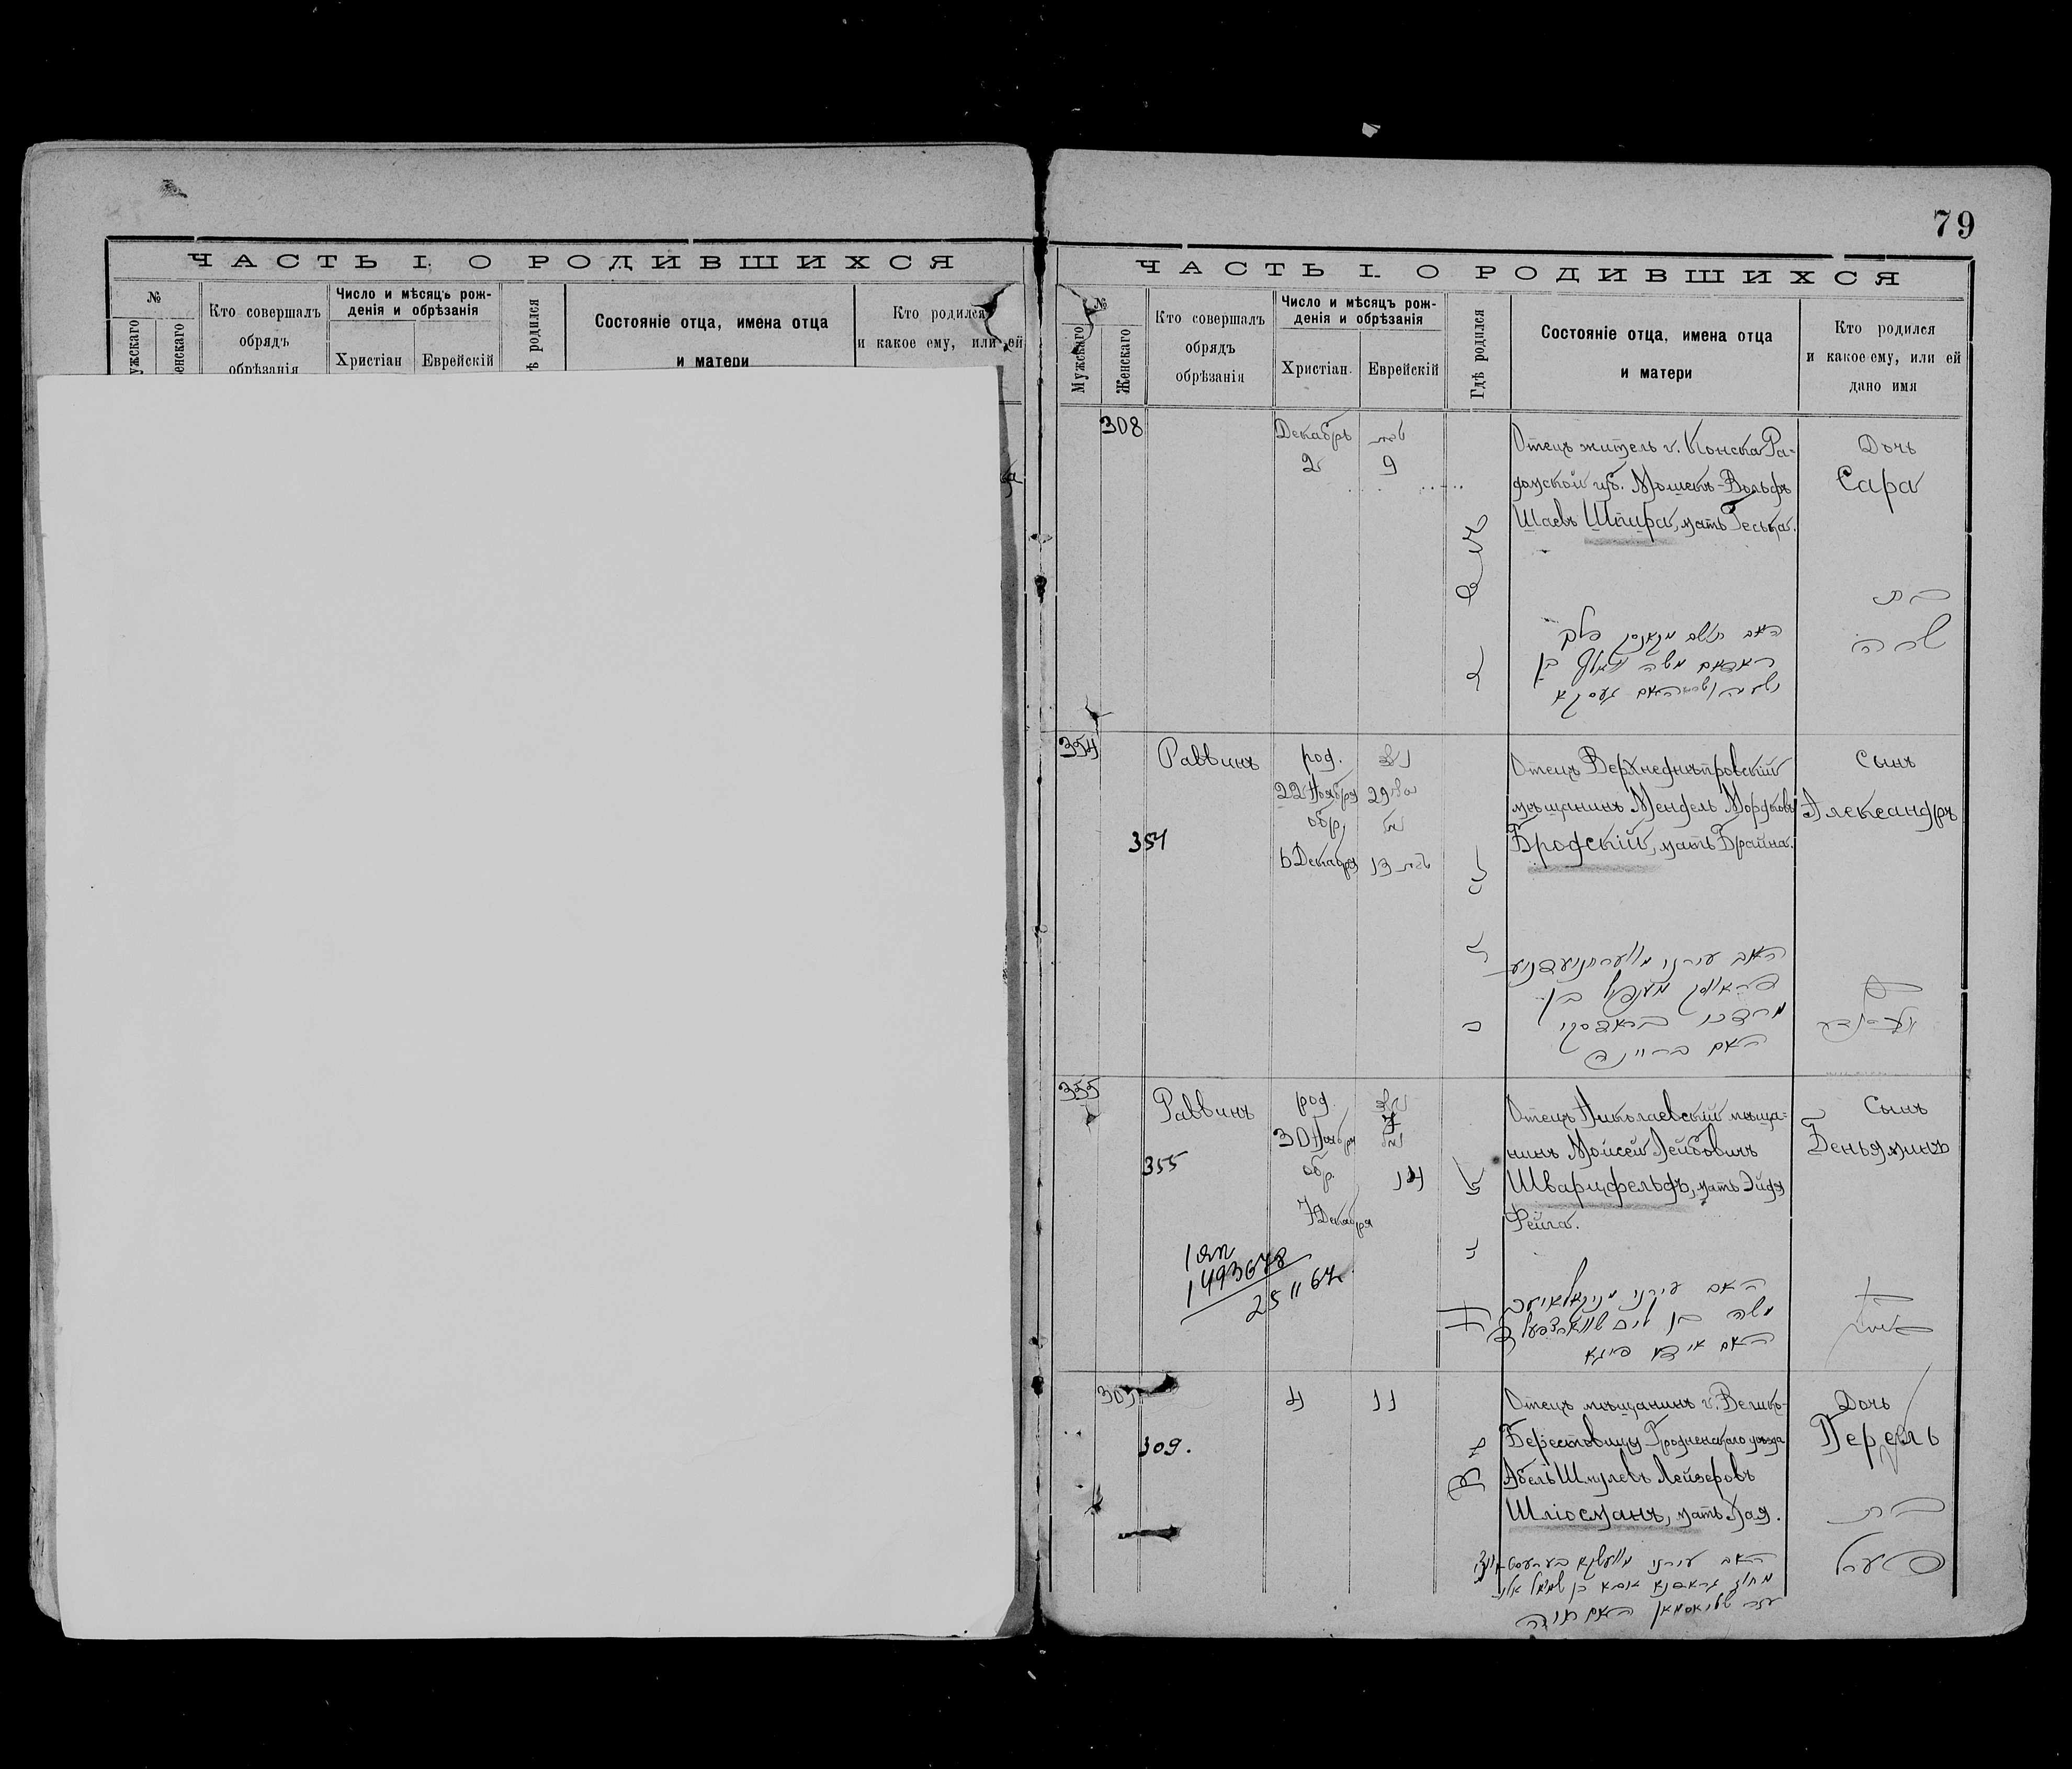 ЧАСТЬ I. О РОДИВШИХСЯ
№
Кто совершалъ
обрядъ
обрѣзанія
Число и мѣсяцъ рож-
денія и обрѣзанія
Христіан
Еврейскій
родился
Состояніе отца, имена отца
и матери
Кто родился
и какое ему, или ей
79
ЧАСТЬ I. О РОДИВШИХСЯ
№
Мужскаго
Женскаго
Кто совершалъ
обрядъ
обрѣзанія
Число и мѣсяцъ рож-
денія и обрѣзанія
Христіан.
Еврейскій
Гдѣ родился
Состояніе отца, имена отца
и матери
Кто родился
и какое ему, или ей
дано имя
308
Декабрь
2
9
Отецъ житель г. Конска Ра-
домской губ. Мошекъ-Вольфъ
Шаевъ Шпира, мать Геська.
Дочь
Сара
בת
שרה
354
Раввинъ
354
род.
22 Ноября
обр.
6 Декабря
29
13
Отецъ Верхнеднѣпровскій
мѣщанинъ Мендель Мордковъ
Бродскій, мать Брайна.
Сынъ
Александръ
האב עירני
מרדכי בראדסקי
האם בריינה
355
Раввинъ
355
род.
30 Ноября
обр.
7 Декабря
7
14
Отецъ Николаевскій мѣща-
нинъ Мойсей Лейбовичъ
Шварцфельдъ, мать Эйдя
Фейга.
Сынъ
Беньяминъ
האב עירני
משה בן
האם אידא פייגא
309
309.
4
11
Отецъ мѣщанинъ г. Велико-
Берестовицы Гродненскаго уѣзда
Абель Шмулевъ Лейзеровъ
Шліосманъ, мать Хая.
Дочь
Перель
בת
פערל
האב עירני
האם חיה